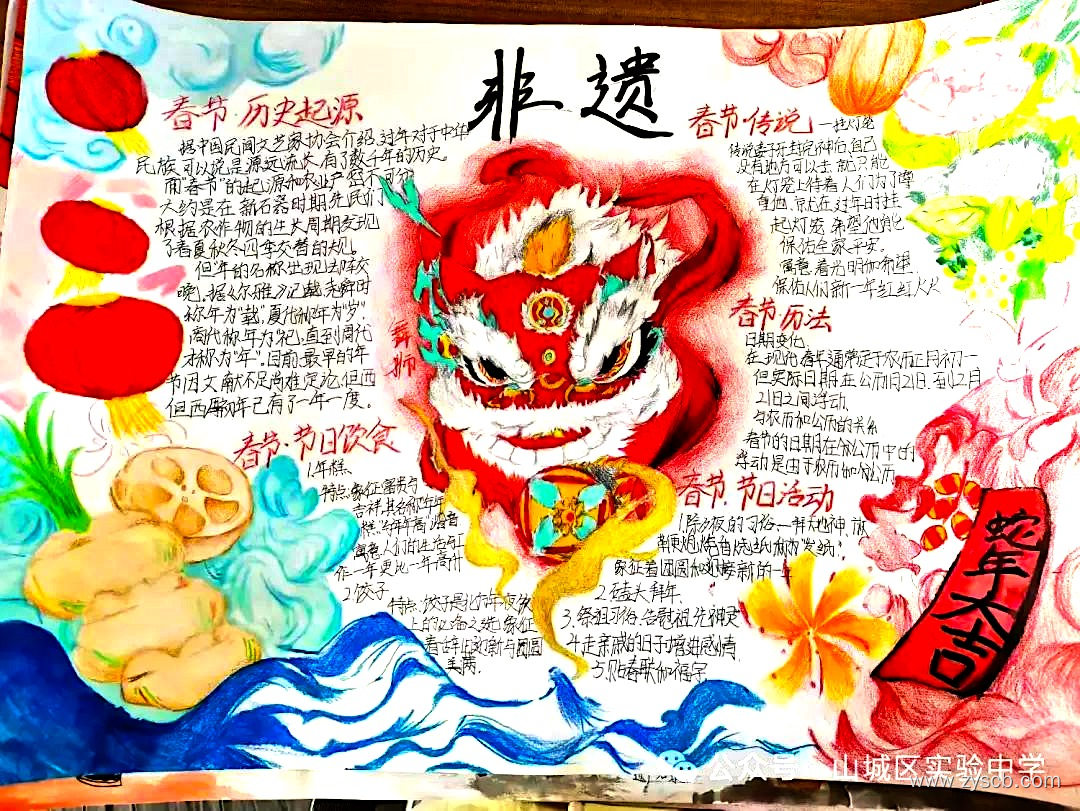 非遗
春节·历史起源
据中国民间文艺家协会介绍,过年对于中华
民族可以说是源远流长,有了数千年的历史。
而"春节"的起源和农业产密不可分
大约是在新石器时期先民们
根据农作物的生长周期发现
了春夏秋冬四季交替的大规。
但"年"的名称出现却较
晚,据《尔雅》记载,尧舜时
称年为"载",夏代称年为"岁",
商代称年为"祀",直到周代
才称为"年"。目前,最早的年
节因文献不足尚难定论,但西
但西周初年已有了一年一度。
舞狮
春节·节日饮食
1.年糕
特点:象征富贵与
吉祥,其名称"年年
寓意人们的生活和工
作一年更比一年高升
2.饺子
特点:饺子是北方年夜饭
上的必备之选,象征
着辞旧迎新与团圆
美满。
春节·传说
一挂灯笼
传说姜子牙封完神后,自己
没有地方可以去,就只能
在灯笼上待着,人们为了尊
重他,常在过年时挂
起灯笼,希望他能
保佑全家平安。
寓意着光明和希望
保佑人们新一年红红火火
春节历法
日期变化
在现代,春节通常定于农历正月初一
但实际日期在公历1月21日至12月
21日之间浮动.
与农历和公历的关系
春节的日期在公历中的
浮动是由于农历和公历
春节·节日活动
象征着团圆和迎接新的一年
2.磕头拜年.
3.祭祖习俗,告慰祖先神灵
4.走亲戚的日子,增进感情.
5.贴春联和福字
蛇年大吉
公众号·山城区实验中学
www.zyscb.com